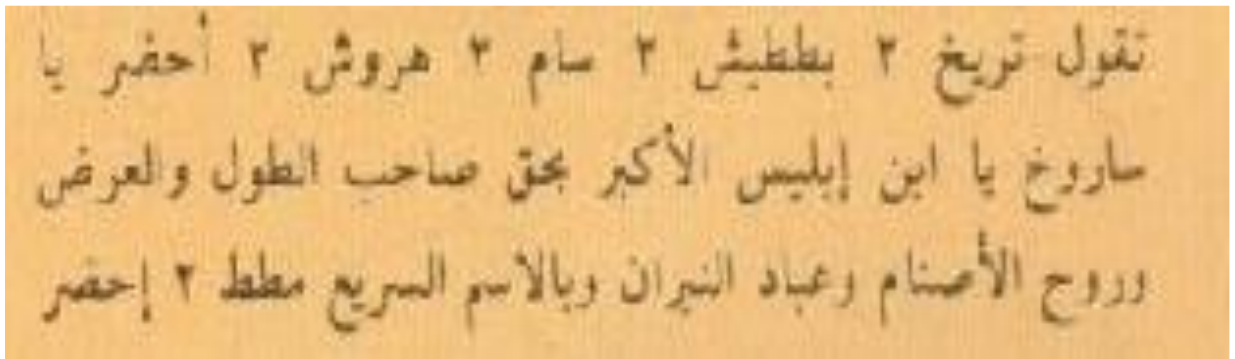 تقول تريخ ٢ بططيش ٢ سام ٢ هروش ٢ أحضر يا
ساروخ يا ابن إبليس الأكبر بحق صاحب الطول والعرض
وروح الأصنام وعباد النيران وبالاسم السريع مطط ٢ إحضر